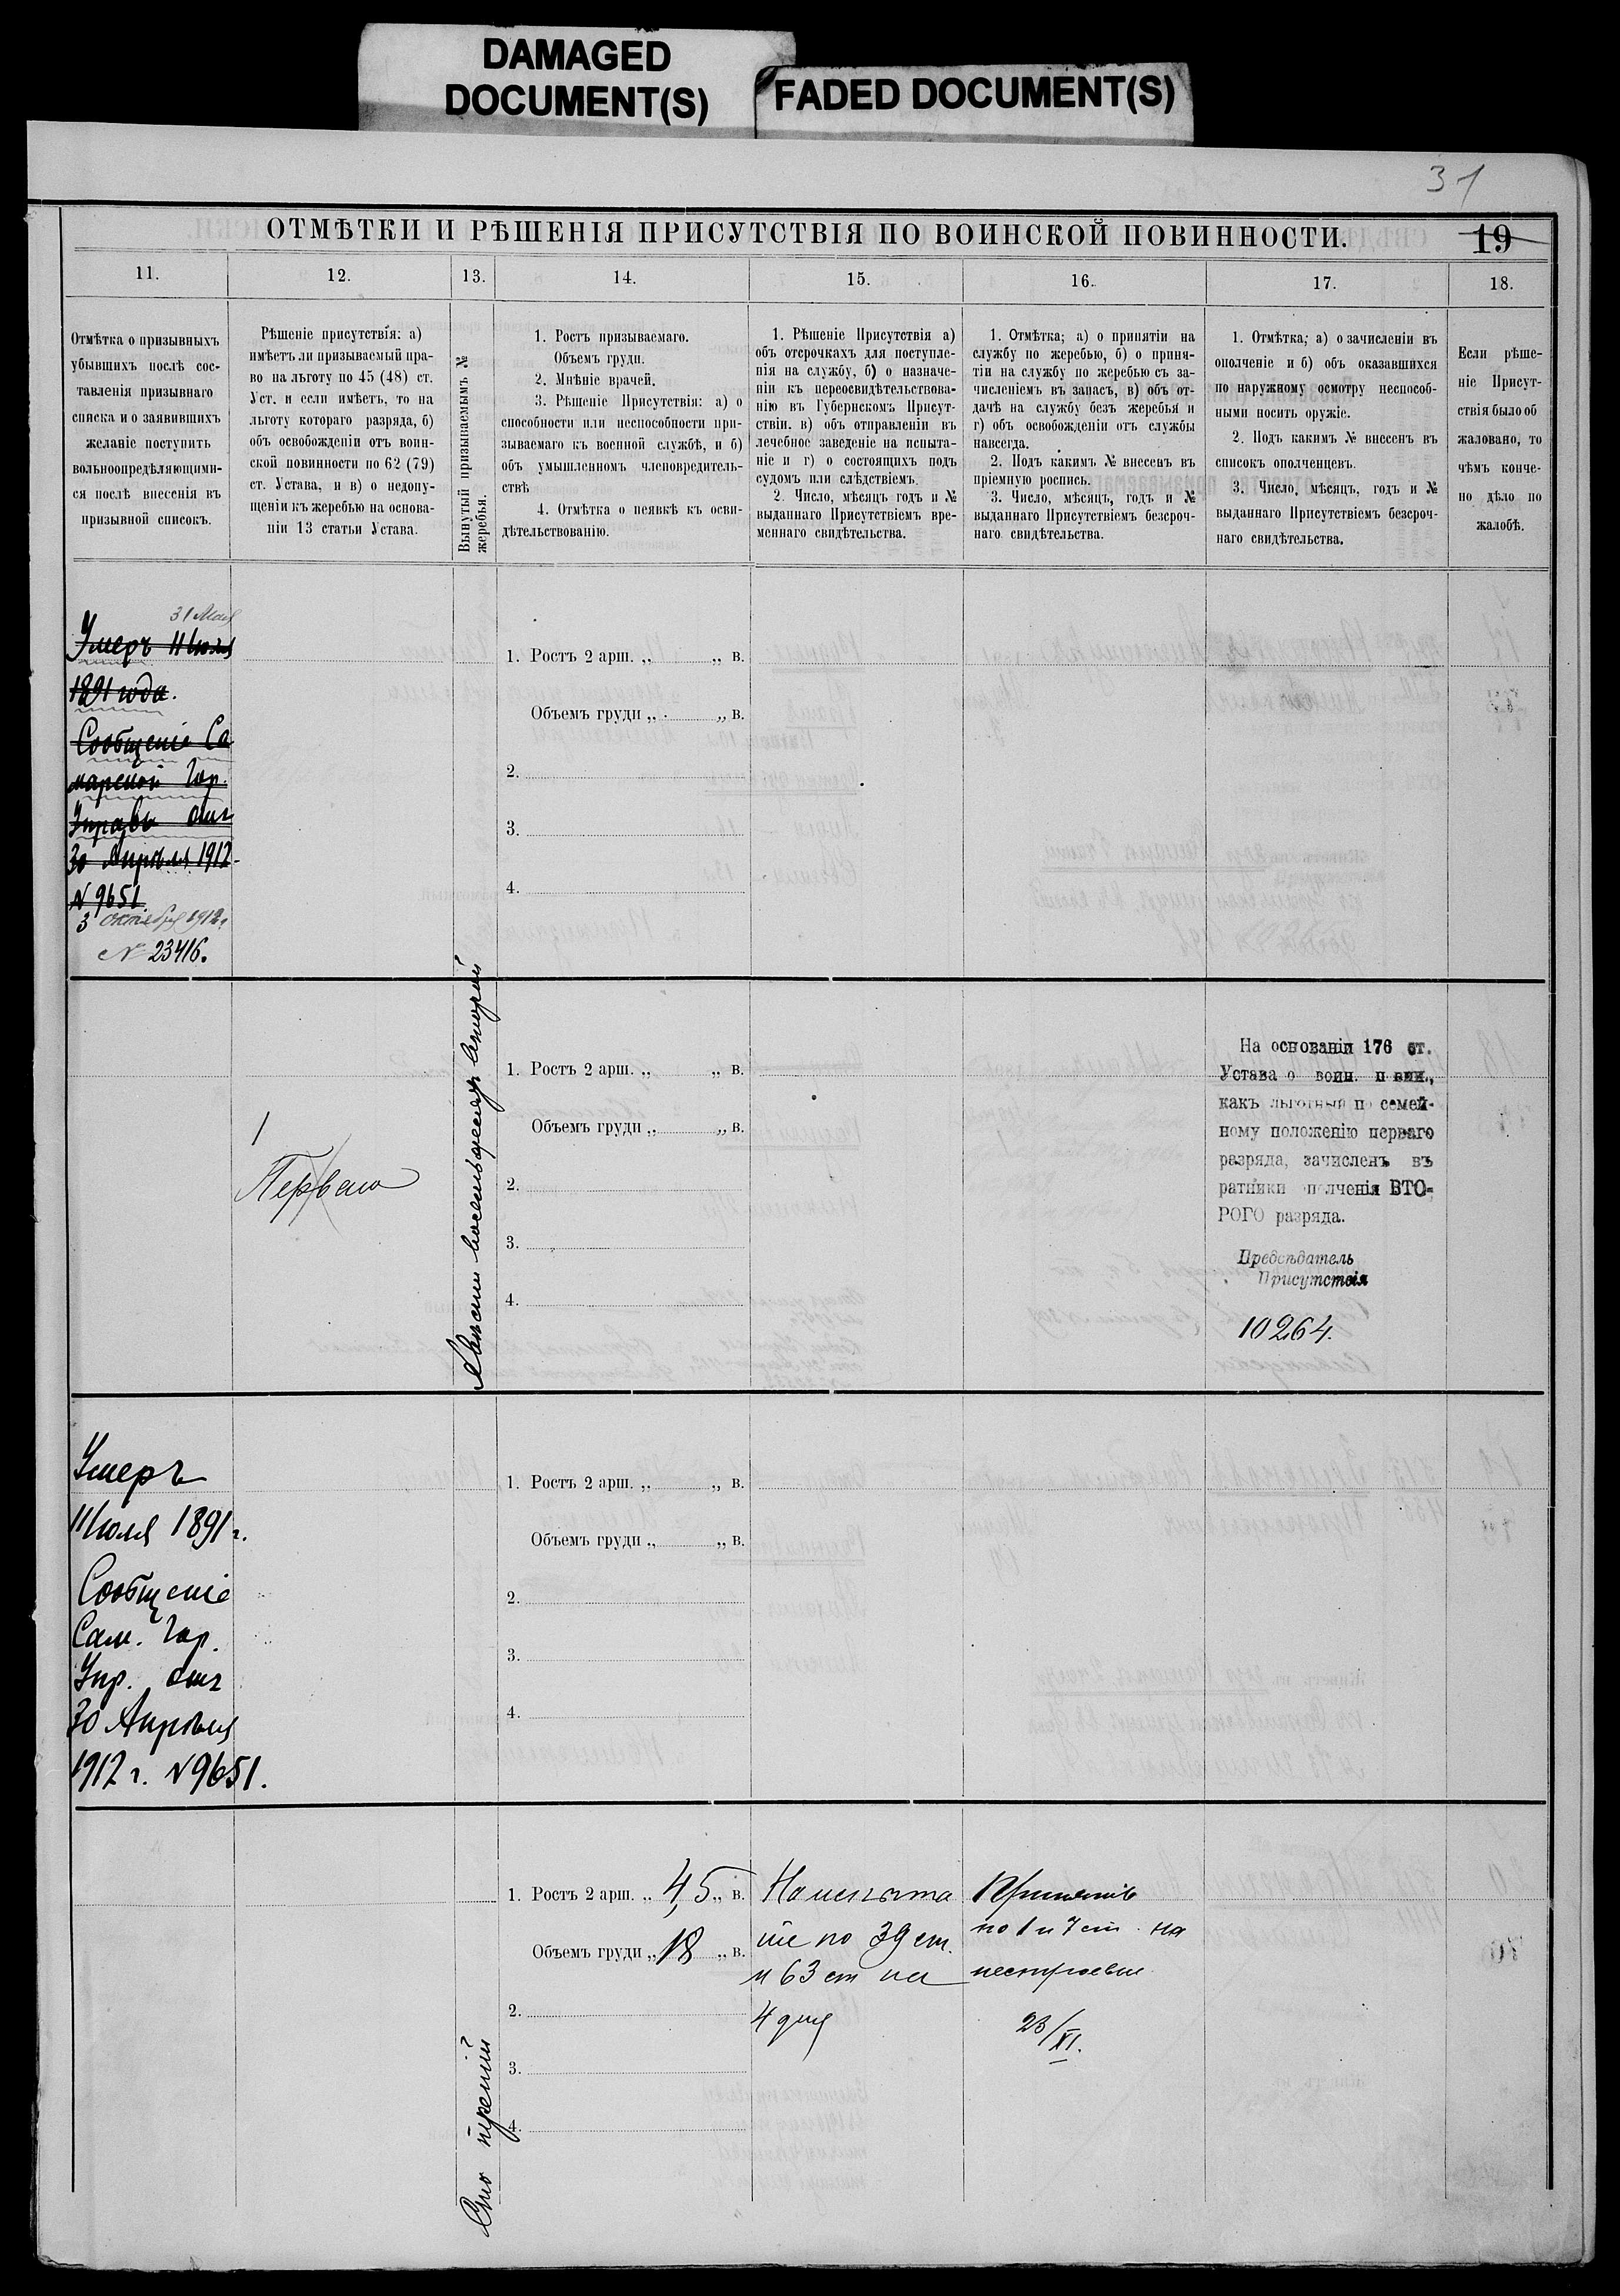 DAMAGED
DOCUMENT(S)
FADED DOCUMENT(S)
31
ОТМѢТКИ И РѢШЕНІЯ ПРИСУТСТВІЯ ПО ВОИНСКОЙ ПОВИННОСТИ.
19
11.
12.
13.
14.
15.
16.
17.
18.
Отмѣтка о призывныхъ
убывшихъ послѣ сос-
тавленія призывнаго
списка и о заявившихъ
желаніе поступить
вольноопредѣляющими-
ся послѣ внесенія въ
призывной списокъ.
Рѣшеніе присутствія: а)
имѣетъ ли призываемый пра-
во на льготу по 45 (48) ст.
Уст. и если имѣетъ, то на
льготу котораго разряда, б)
объ освобожденіи отъ воин-
ской повинности по 62 (79)
ст. Устава, и в) о недопу-
щеніи къ жеребью на основа-
ніи 13 статьи Устава.
Вынутый призываемымъ №
жеребья.
1. Ростъ призываемаго.
Объемъ груди.
2. Мнѣніе врачей.
3. Рѣшеніе Присутствія: а) о
способности или неспособности при-
зываемаго къ военной службѣ, и б)
объ умышленномъ членовредитель-
ствѣ
4. Отмѣтка о неявкѣ къ осви-
дѣтельствованію.
1. Рѣшеніе Присутствія а)
объ отсрочкахъ для поступле-
нія на службу, б) о назначе-
ніи къ переосвидѣтельствова-
нію въ Губернскомъ Присут-
ствіи. в) объ отправленіи въ
лечебное заведеніе на испыта-
ніе и г) о состоящихъ подъ
судомъ или слѣдствіемъ.
2. Число, мѣсяцъ годъ и №
выданнаго Присутствіемъ вре-
меннаго свидѣтельства.
1. Отмѣтка; а) о принятіи на
службу по жеребью, б) о приня-
тіи на службу по жеребью съ за-
численіемъ въ запасъ, в) объ от-
дачѣ на службу безъ жеребья и
г) объ освобожденіи отъ службы
навсегда.
2. Подъ какимъ № внесенъ въ
пріемную роспись.
3. Число, мѣсяцъ, годъ и №
выданнаго Присутствіемъ безсроч-
наго свидѣтельства.
1. Отмѣтка; а) о зачисленіи въ
ополченіе и б) объ оказавшихся
по наружному осмотру неспособ-
ными носить оружіе.
2. Подъ какимъ № внесенъ въ
списокъ ополченцевъ.
3. Число, мѣсяцъ, годъ и №
выданнаго Присутствіемъ безсроч-
наго свидѣтельства.
Если рѣше-
ніе Присут-
ствія было об
жаловано, то
чѣмъ конче-
но дѣло по
жалобѣ.
31 Мая
Умеръ 11 Іюля
1891 года.
Сообщеніе Са
марской Гор.
Управы отъ
30 Апрѣля 1912
№ 9651.
3 октября 1912 г.
№ 23416.
1. Ростъ 2 арш. „ „ в.
Объемъ груди „ „ в.
2.
3.
4.
1
Перваго
Двѣсти восемьдесятъ второй
1. Ростъ 2 арш. „ „ в.
Объемъ груди „ „ в.
2.
3.
4.
На основаніи 176 ст.
Устава о воин. повин.,
какъ льготный по семей-
ному положенію перваго
разряда, зачисленъ въ
ратники ополченія ВТО-
РОГО разряда.
Предсѣдатель
Присутствія
10264.
Умеръ
11 Іюля 1891 г.
Сообщеніе
Сам. Гор.
Упр. отъ
30 Апрѣля
1912 г. № 9651.
1. Ростъ 2 арш. „ „ в.
Объемъ груди „ „ в.
2.
3.
4.
Сто третій
1. Ростъ 2 арш. „ 4,5 „ в.
Объемъ груди „ 18 „ в.
2.
3.
4.
На испыта
ніе по 39 ст.
и 63 ст на
4 дня
Принятъ
по 1 и 7 ст. на
нестроевые
23/XI.